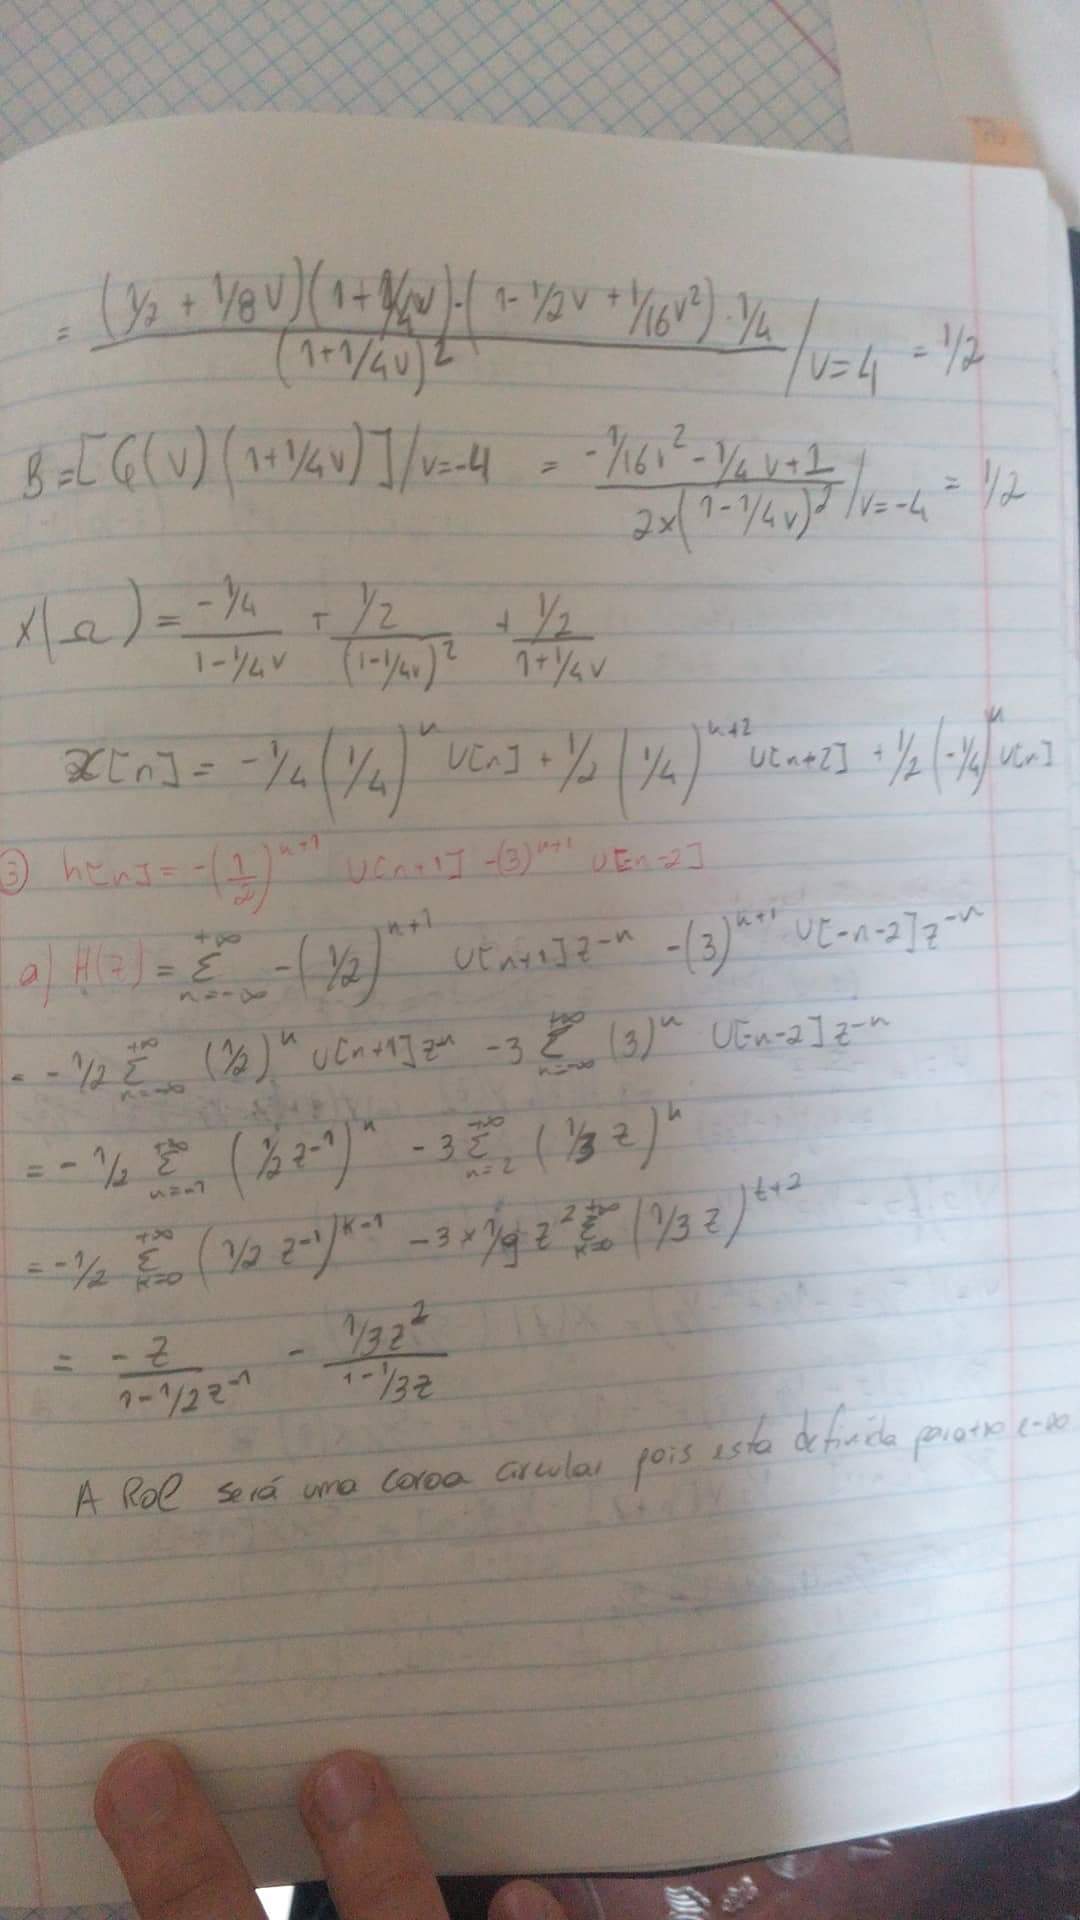 = (1/2 + 1/8 v)(1+1/4v)·(1-1/2v + 1/16v²)·1/4 / (1+1/4v)² /v=4 = 1/2
B=[G(v)(1+1/4v)]/v=-4 = -1/16v²-1/4v+1 / 2×(1-1/4v)² /v=-4 = 1/2
X(Ω) = -1/4 / 1-1/4v + 1/2 / (1-1/4v)² + 1/2 / 1+1/4v
x[n] = -1/4 (1/4)^n U[n] + 1/2 (1/4)^n+2 U[n+2] + 1/2 (-1/4)^n U[n]
③ h[n] = -(1/2)^n+1 U[n+1] -(3)^n+1 U[-n-2]
a) H(z) = Σ n=-∞ +∞ -(1/2)^n+1 U[n+1] z^-n -(3)^n+1 U[-n-2] z^-n
= -1/2 Σ n=-∞ +∞ (1/2)^n U[n+1] z^-n -3 Σ n=-∞ +∞ (3)^n U[-n-2] z^-n
= -1/2 Σ n=-1 +∞ (1/2 z^-1)^n -3 Σ n=2 +∞ (1/3 z)^n
= -1/2 Σ k=0 +∞ (1/2 z^-1)^k-1 -3×1/9 z² Σ k=0 +∞ (1/3 z)^t+2
= -z / 1-1/2z^-1 - 1/3z² / 1-1/3z
A ROC será uma coroa circular pois esta definida para +∞ e -∞